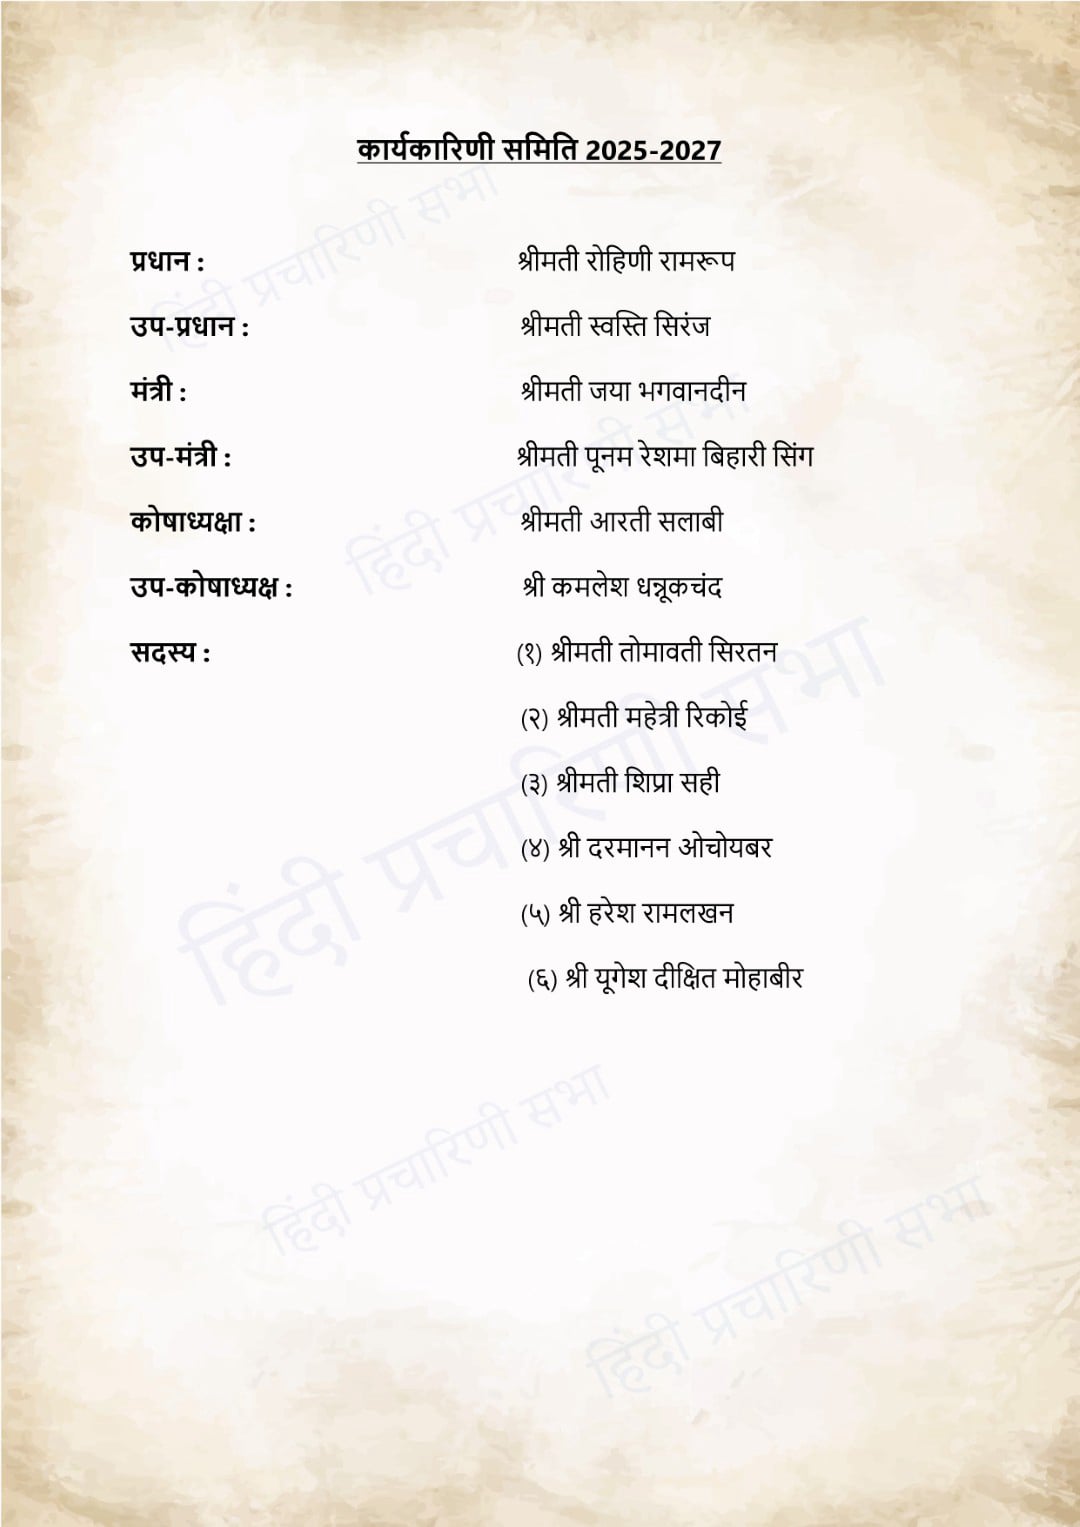 कार्यकारिणी समिति 2025-2027
प्रधान : श्रीमती रोहिणी रामरूप
उप-प्रधान : श्रीमती स्वस्ति सिरंज
मंत्री : श्रीमती जया भगवानदीन
उप-मंत्री : श्रीमती पूनम रेशमा बिहारी सिंग
कोषाध्यक्षा : श्रीमती आरती सलाबी
उप-कोषाध्यक्ष : श्री कमलेश धन्नूकचंद
सदस्य : (१) श्रीमती तोमावती सिरतन
(२) श्रीमती महेत्री रिकोई
(३) श्रीमती शिप्रा सही
(४) श्री दरमानन ओचोयबर
(५) श्री हरेश रामलखन
(६) श्री यूगेश दीक्षित मोहाबीर
हिंदी प्रचारिणी सभा
हिंदी प्रचारिणी सभा
हिंदी प्रचारिणी सभा
हिंदी प्रचारिणी सभा
हिंदी प्रचारिणी सभा